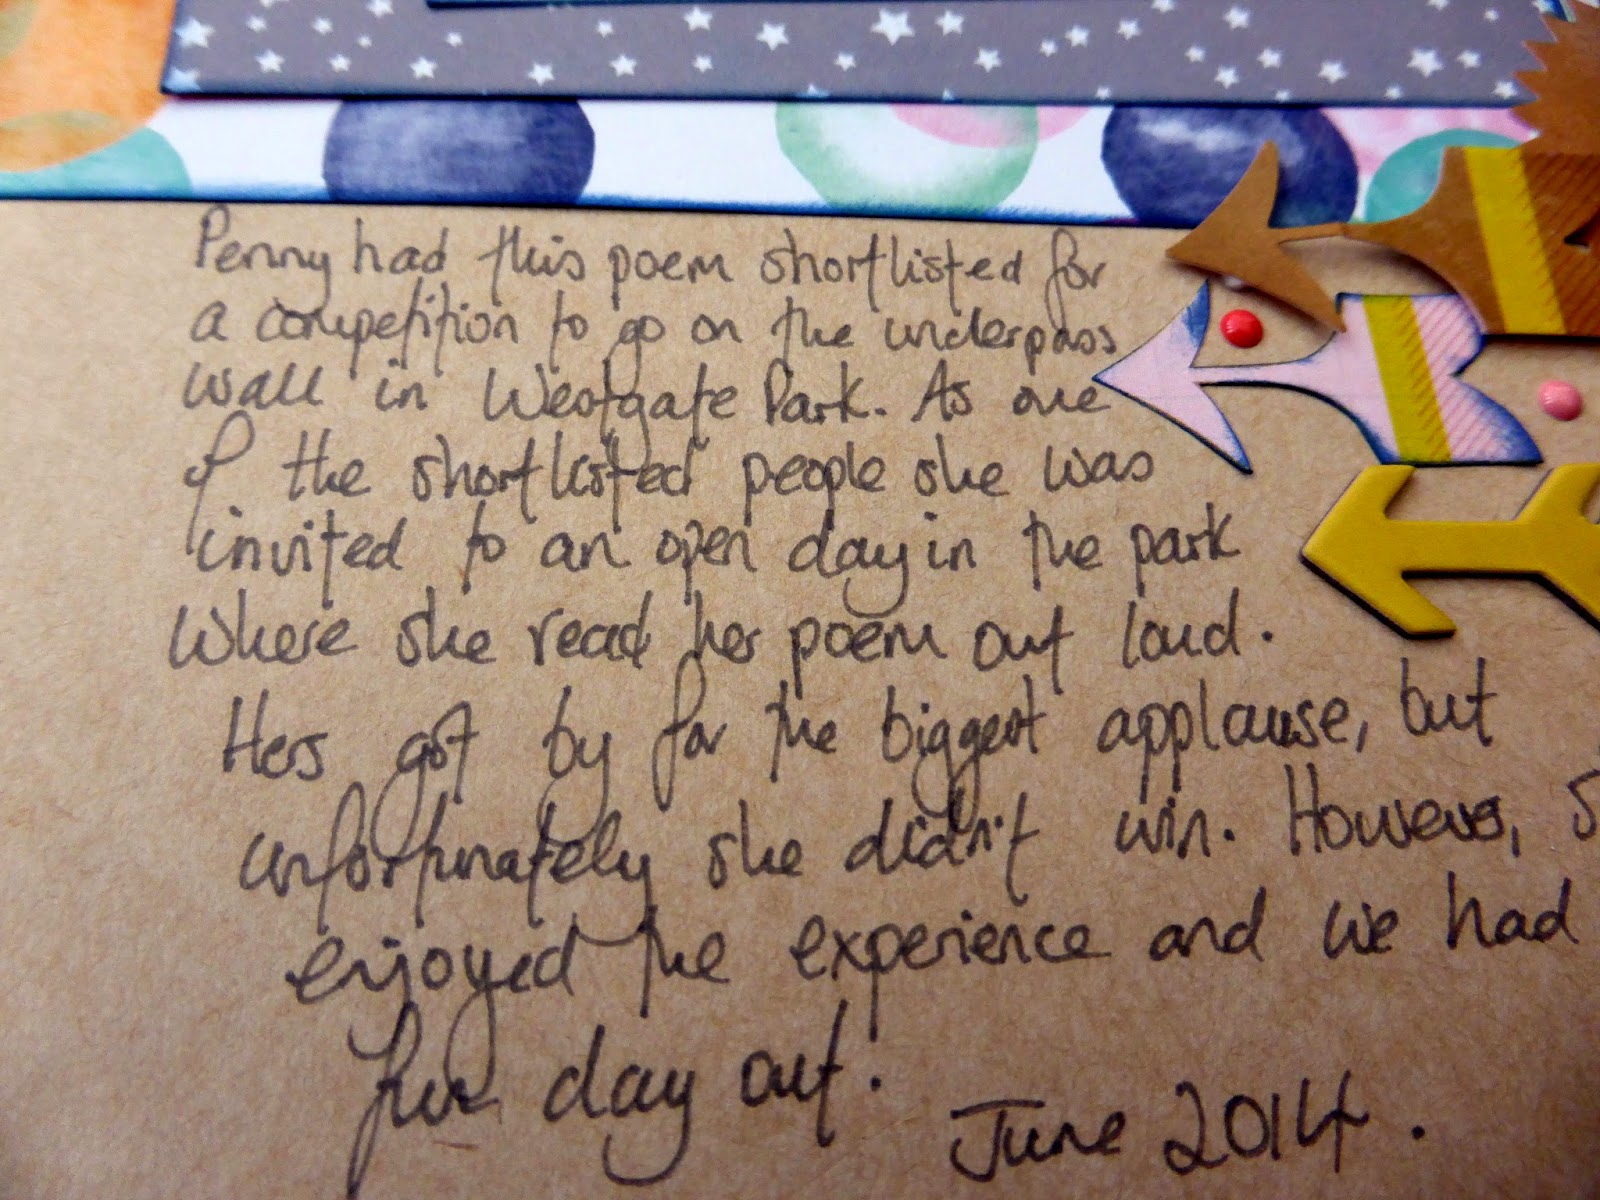 Penny had this poem shortlisted for
a competition to go on the underpass
wall in Westgate Park. As one
of the shortlisted people she was
invited to an open day in the park
where she read her poem out loud.
Hers got by far the biggest applause, but
unfortunately she didn't win. However, s
enjoyed the experience and we had
fun day out.
June 2014.